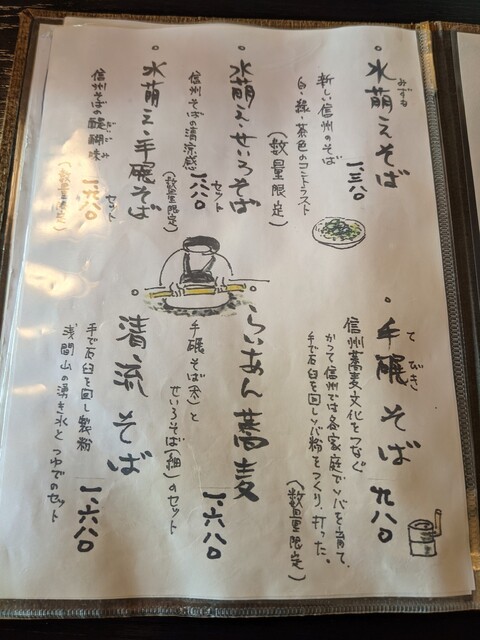 水萌えそば 一、一三〇
新しい信州のそば
白・緑・茶色のコントラスト
(数量限定)
水萌えせいろそば
信州そばの清涼感
セット
(数量限定)
水萌え・手碾そば
信州そばの醍醐味
セット
一、六八〇
(数量限定)
てびき
手碾そば 九八〇
信州蕎麦文化をつなぐ
かつて信州では各家庭でソバを育て、
手で石臼を回しソバ粉をつくり、打った。
(数量限定)
らいおん蕎麦
手碾そば(太)と
せいろそば(細)のセット
一、六八〇
清流そば
手で石臼を回し製粉
浅間山の湧き水とつゆでのセット
一、六八〇